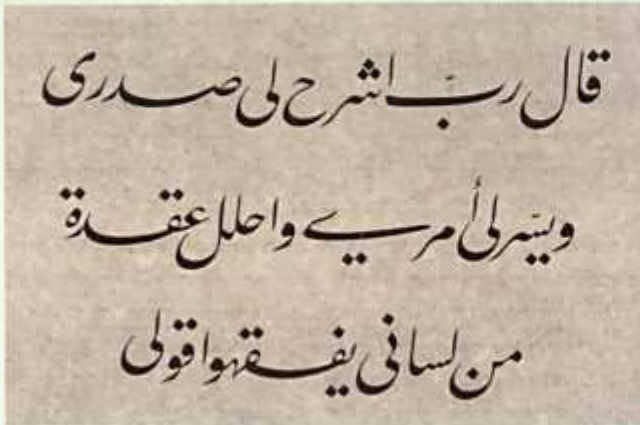 قال ربّ اشرح لی صدری
ویسّر لی أمری واحلل عقدة
من لسانی یفقهوا قولی